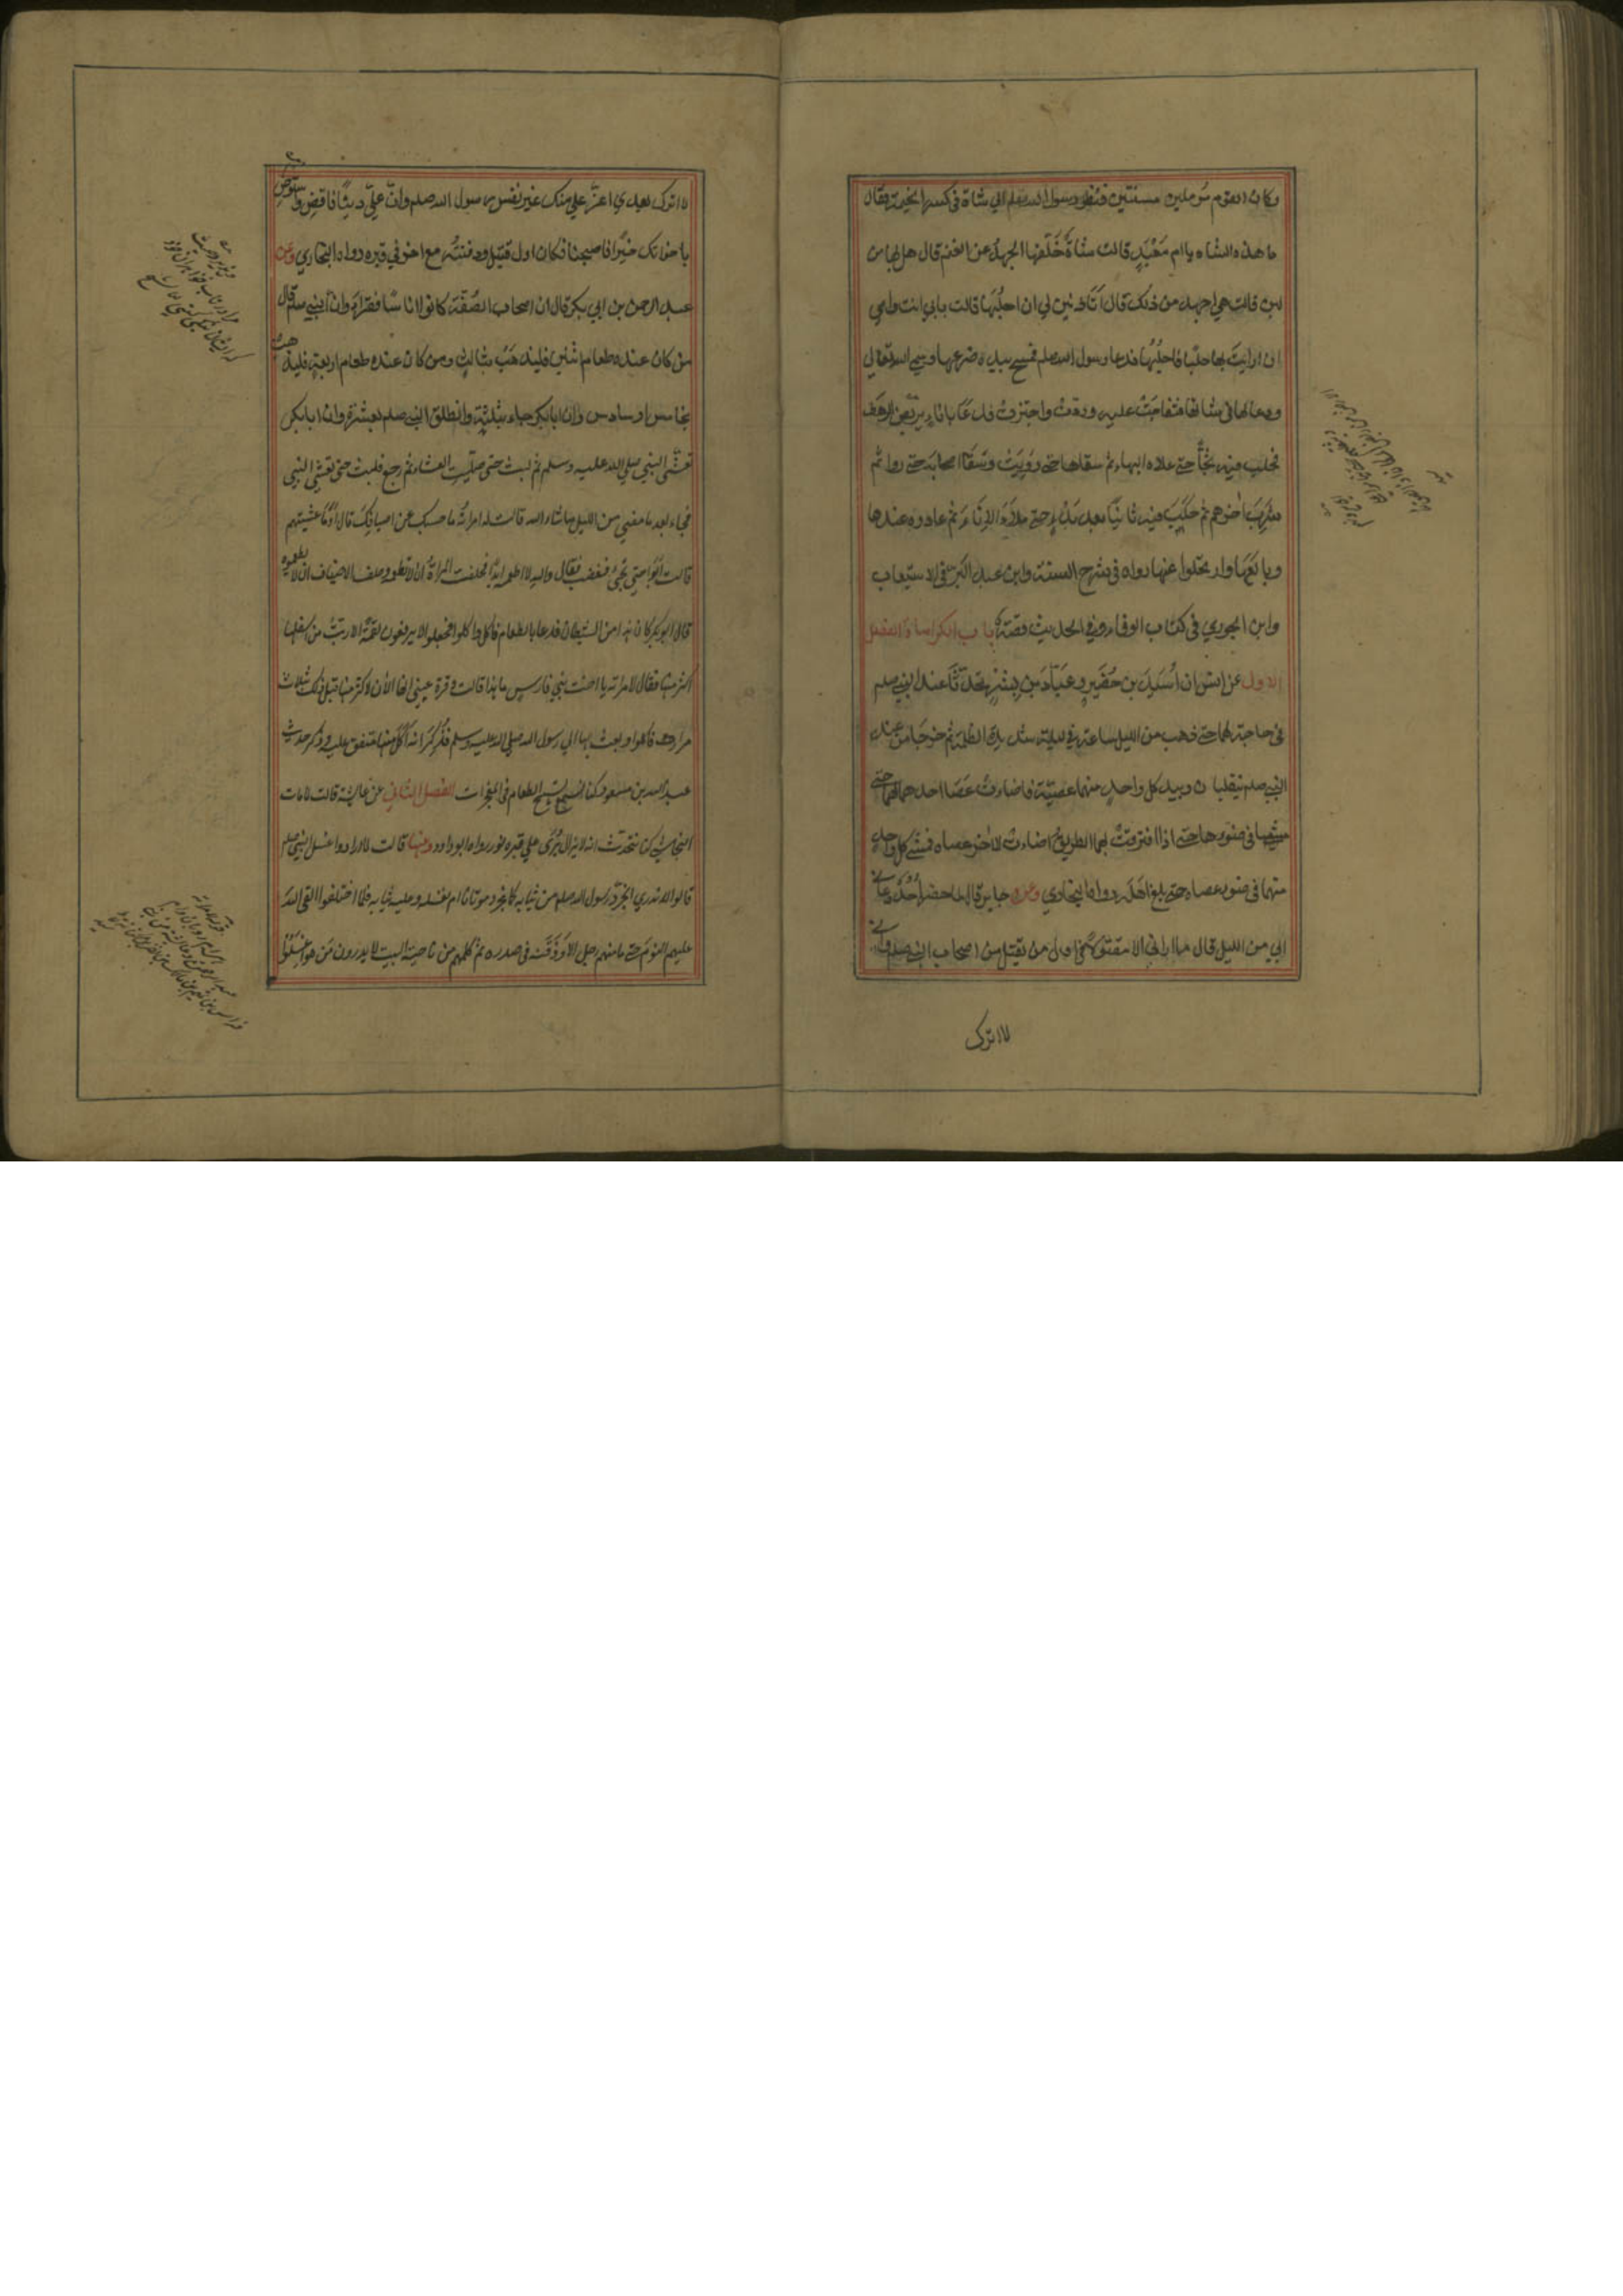 وكان القوم مرملين مسنتين فنظر رسول الله صلعم الي شاة في كسر الخيمة فقال
ما هذه الشاه يا ام مَعْبَدٍ قالت شاةٌ خَلَّفها الجهدُ عن الغنم قال هل بها من
لبن قالت هي اجهد من ذلك قال اتاذنين لي ان احلُبَها قالت بابي انت وامي
ان رايتَ بها حلبًا فاحلُبْها فدعا رسول الله صلعم فمسح بيده ضرعها وسمي الله تعالي
ودعا لها في شاتها فتفاجَّتْ عليه ودرّت واجترت فدعا باناء يربض الرهط
فحلب فيه ثجًّا حتي علاه البهاء ثم سقاها حتي رويَتْ وسقا اصحابه حتي رووا ثم
شرب اخرهم ثم حلب فيه ثانيًا بعد بدءٍ حتي ملأ الاناء ثم غادره عندها
وبايعها وارتحلوا عنها رواه في شرح السنة وابن عبد البر في الاستيعاب
وابن الجوزي في كتاب الوفاء وفي الحديث قصة باب الكرامات الفصل
الاول عن انس ان اُسَيد بن حُضَيرٍ وعبّاد بن بِشْرٍ تحدثا عند النبي صلعم
في حاجة لهما حتي ذهب من الليل ساعة في ليلة شديدة الظلمة ثم خرجا من عند
النبي صلعم ينقلبان وبيد كل واحدٍ منهما عصيّة فاضاءت عَصَا احدهما لهما حتي
مشيا في ضوءها حتي اذا افترقت بهما الطريق اضاءت للاخر عصاه فمشي كل واحدٍ
منهما في ضوء عصاه حتي بلغ اهله رواه البخاري وعن جابر قال لما حضر اُحُدٌ دعاني
ابي من الليل قال ما اراني الا مقتولا في اول من يقتل من اصحاب النبي صلعم واني
لا اترك
لا اترك بعدي اعزّ علي منك غير نفس رسول الله صلعم وانّ عليّ دينًا فاقض واستوص
باخواتك خيرًا فاصبحنا فكان اول قتيل ودفنتُه مع اخر في قبره رواه البخاري وعن
عبد الرحمن بن ابي بكر قال ان اصحاب الصُفّة كانوا اناسًا فقراء وان النبي صلعم قال
من كان عنده طعام اثنين فليذهَبْ بثالثٍ ومن كان عنده طعام اربعة فليذهب
بخامس او سادس وان ابا بكر جاء بثلثة وانطلق النبي صلعم بعشرة وان ابا بكر
تعشّي النبي صلي الله عليه وسلم ثم لبث حتي صلّيت العشاء ثم رجع فلبث حتي تعشي النبي
فجاء بعد ما مضي من الليل ما شاء الله قالت له امراته ما حبسك عن اضيافك قال اوَما عشيتهم
قالت ابَوا حتي تجيء فغضب فقال والله لا اطعمه ابدًا فحلفت المراة ان لا تطعمه وحلف الاضياف ان لا يطعموه
قال ابو بكر كان هذا من الشيطان فدعا بالطعام فاكل واكلوا فجعلوا لا يرفعون لقمة الا ربت من اسفلها
اكثر منها فقال لامراته يا اخت بني فارس ما هذا قالت وقرة عيني انها الآن لاكثر منها قبل ذلك بثلاث
مرارٍ فاكلوا وبعث بها الي رسول الله صلي الله عليه وسلم فذُكر انه اكل منها متفق عليه وذكر حديث
عبد الله بن مسعود كنا نسمع تسبيح الطعام في المعجزات الفصل الثاني عن عايشة قالت لما مات
النجاشي كنا نتحدث انه لا يزال يُرَي علي قبره نور رواه ابو داود وعنها قالت لما ارادوا غسل النبي صلعم
قالوا لا ندري انجرّد رسول الله صلعم من ثيابه كما نجرد موتانا ام نغسله وعليه ثيابه فلما اختلفوا القي الله
عليهم النوم حتي ما منهم رجل الا وذقنه في صدره ثم كلمهم من ناحية البيت لا يدرون من هو اغسلوا